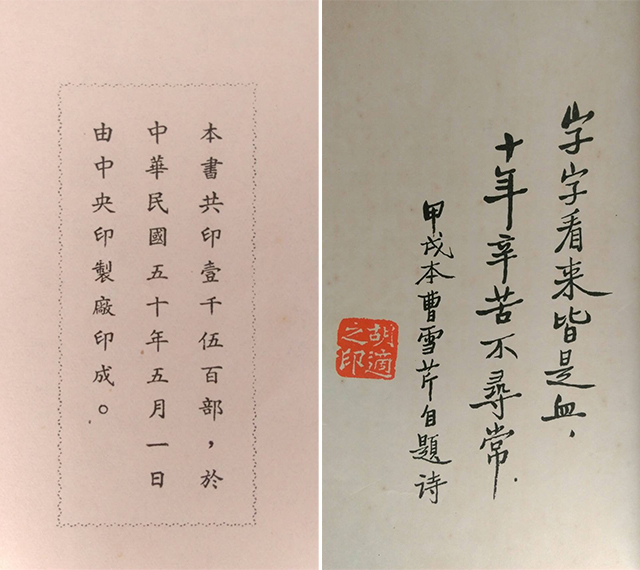 本書共印壹千伍百部，於
中華民國五十年五月一日
由中央印製廠印成。
字字看来皆是血，
十年辛苦不尋常．
甲戌本曹雪芹自題诗
胡適
之印